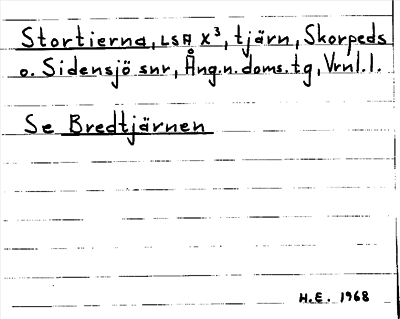 Stortierna, LSA X³, tjärn, Skorpeds
o. Sidensjö snr, Ång.n.doms.tg, Vrnl.l.
Se Bredtjärnen
H.E. 1968